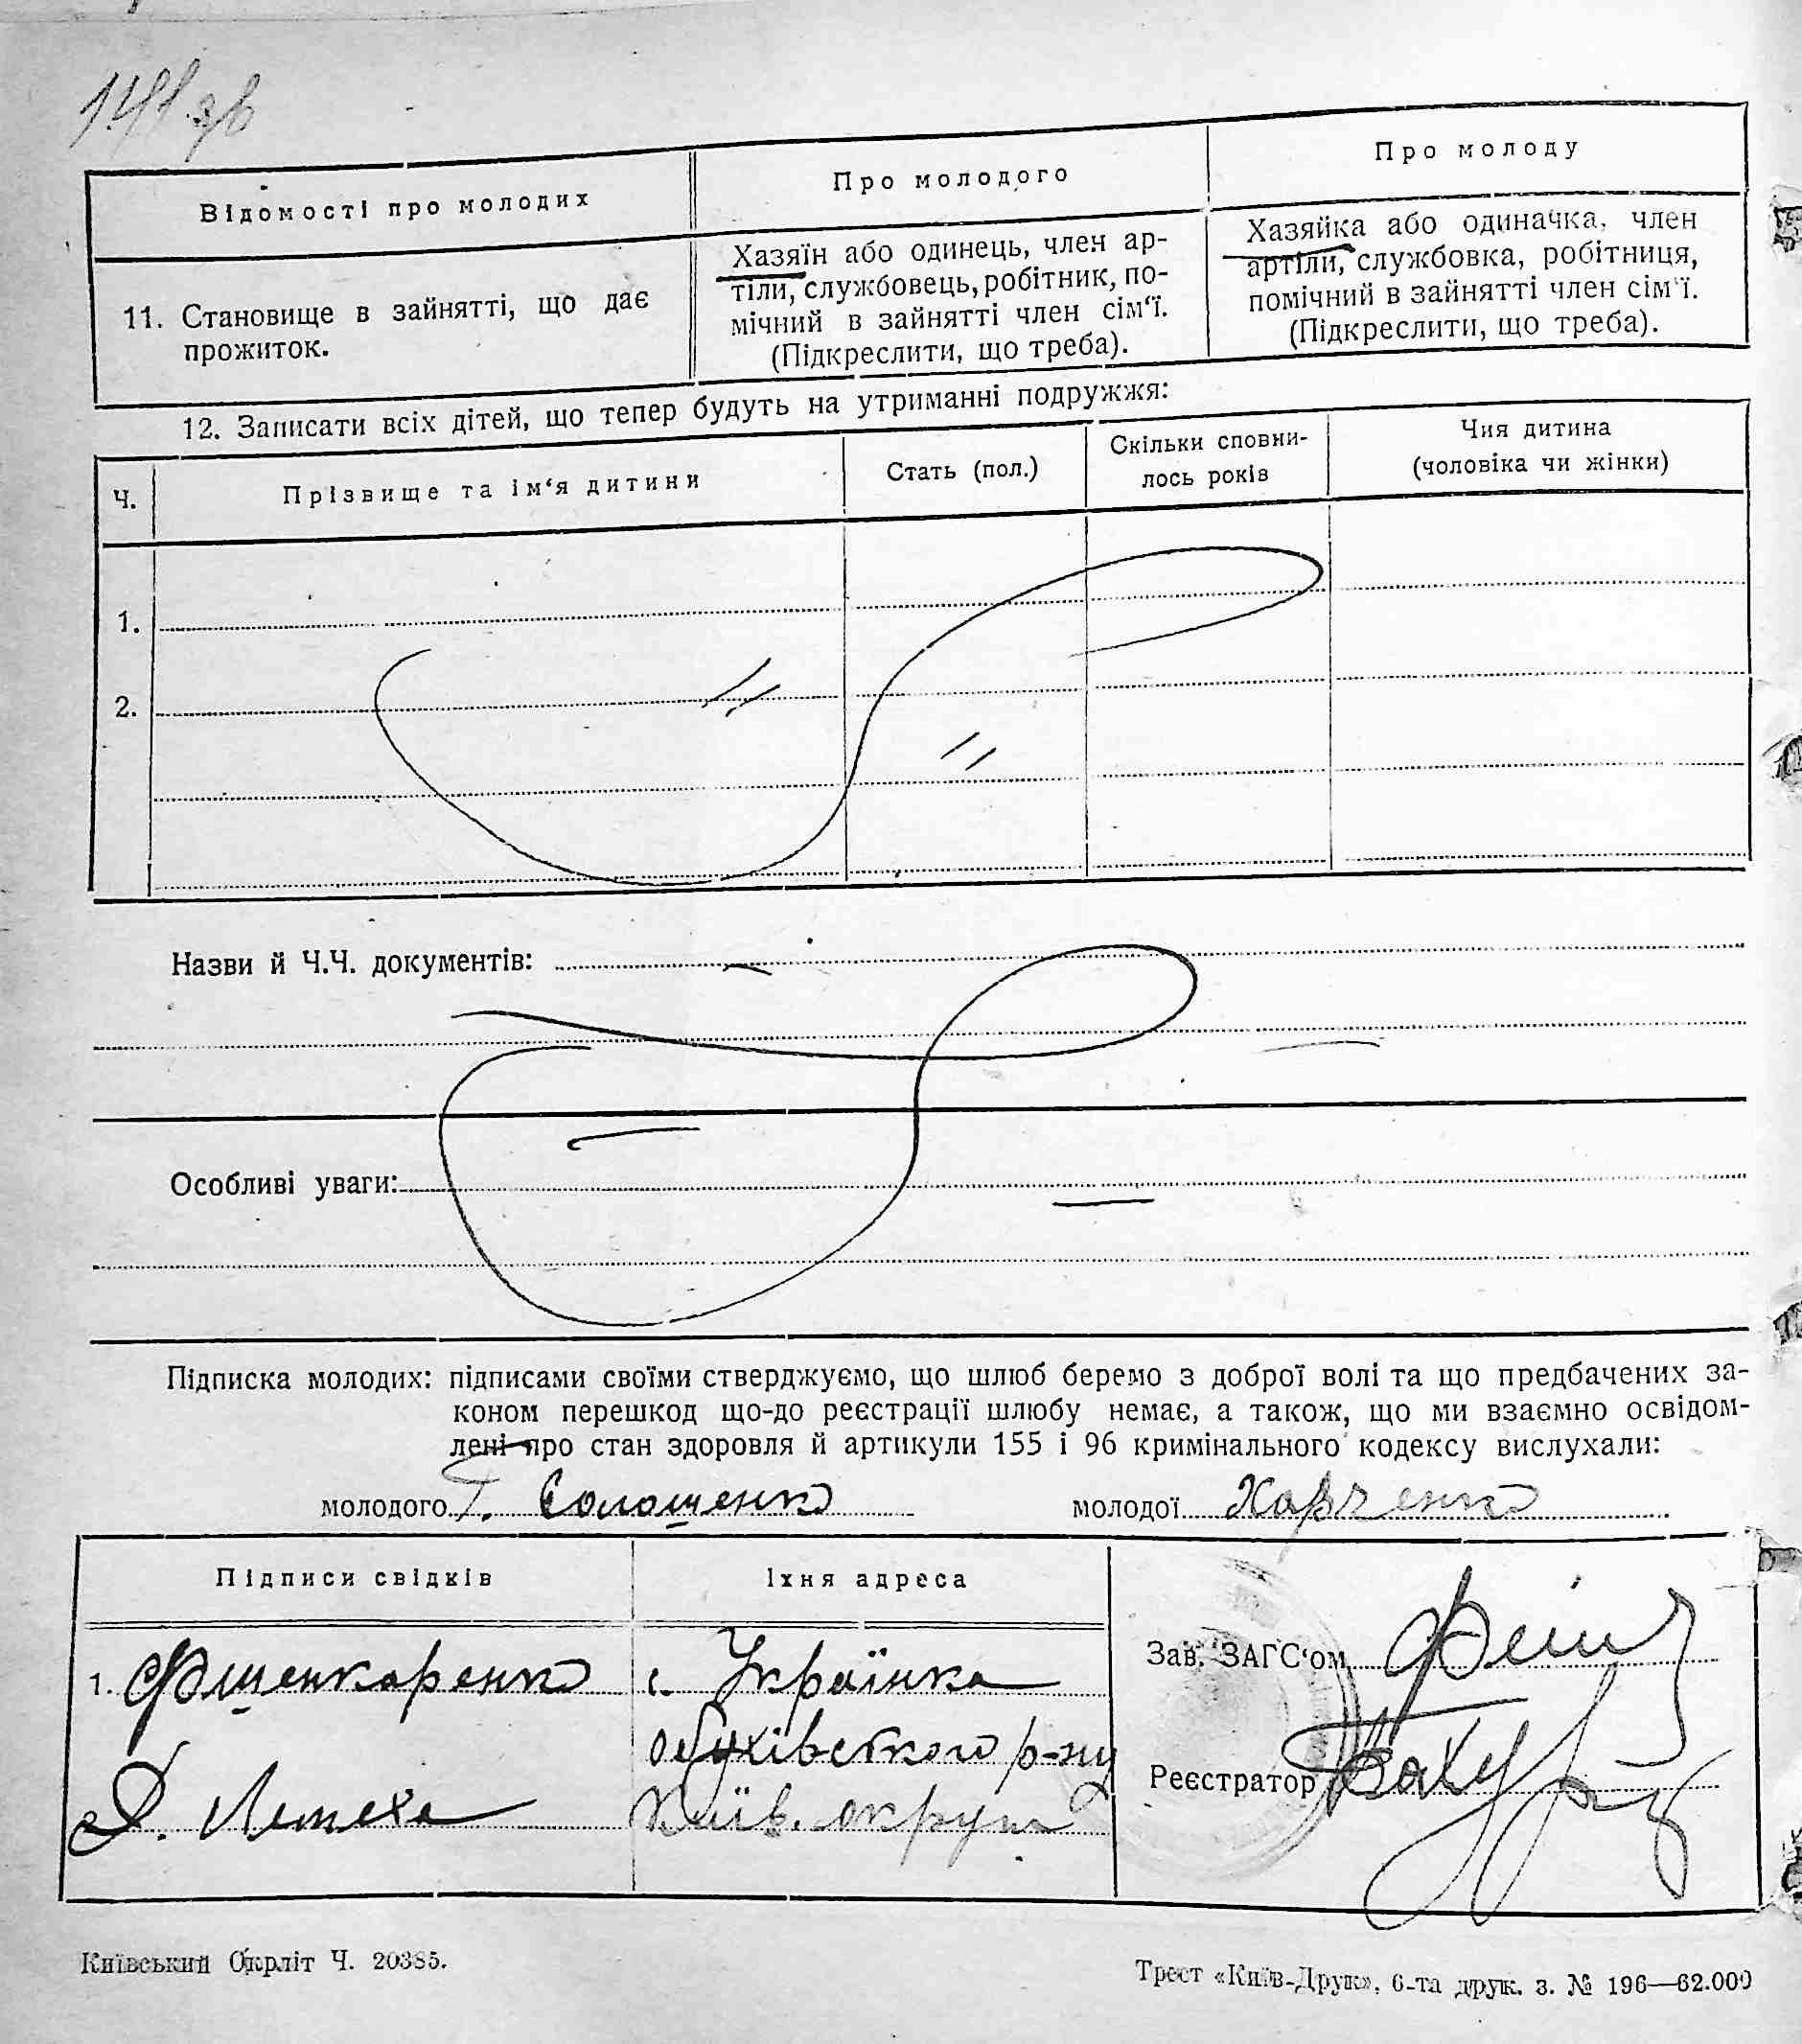 141 зв
Відомості про молодих
Про молодого
Про молоду
11. Становище в зайнятті, що дає
прожиток.
Хазяїн або одинець, член ар-
тіли, службовець, робітник, по-
мічний в зайнятті член сім‘ї.
(Підкреслити, що треба).
Хазяйка або одиначка, член
артіли, службовка, робітниця,
помічний в зайнятті член сім‘ї.
(Підкреслити, що треба).
12. Записати всіх дітей, що тепер будуть на утриманні подружжя:
Ч.
Прізвище та ім‘я дитини
Стать (пол.)
Скільки сповни-
лось років
Чия дитина
(чоловіка чи жінки)
1.
2.
Назви й Ч.Ч. документів:
Особливі уваги:
Підписка молодих: підписами своїми стверджуємо, що шлюб беремо з доброї волі та що предбачених за-
коном перешкод що-до реєстрації шлюбу немає, а також, що ми взаємно освідом-
лені про стан здоровля й артикули 155 і 96 кримінального кодексу вислухали:
молодого Г. Солошенко молодої Харченко
Підписи свідків
Їхня адреса
1.
с. Українка
Обухівського р-ну
Д. Лемеха
Київ. округи
Зав. ЗАГС‘ом
Реєстратор
Київський Окрліт Ч. 20385.
Трест «Київ-Друк», 6-та друк. з. № 196—62.000